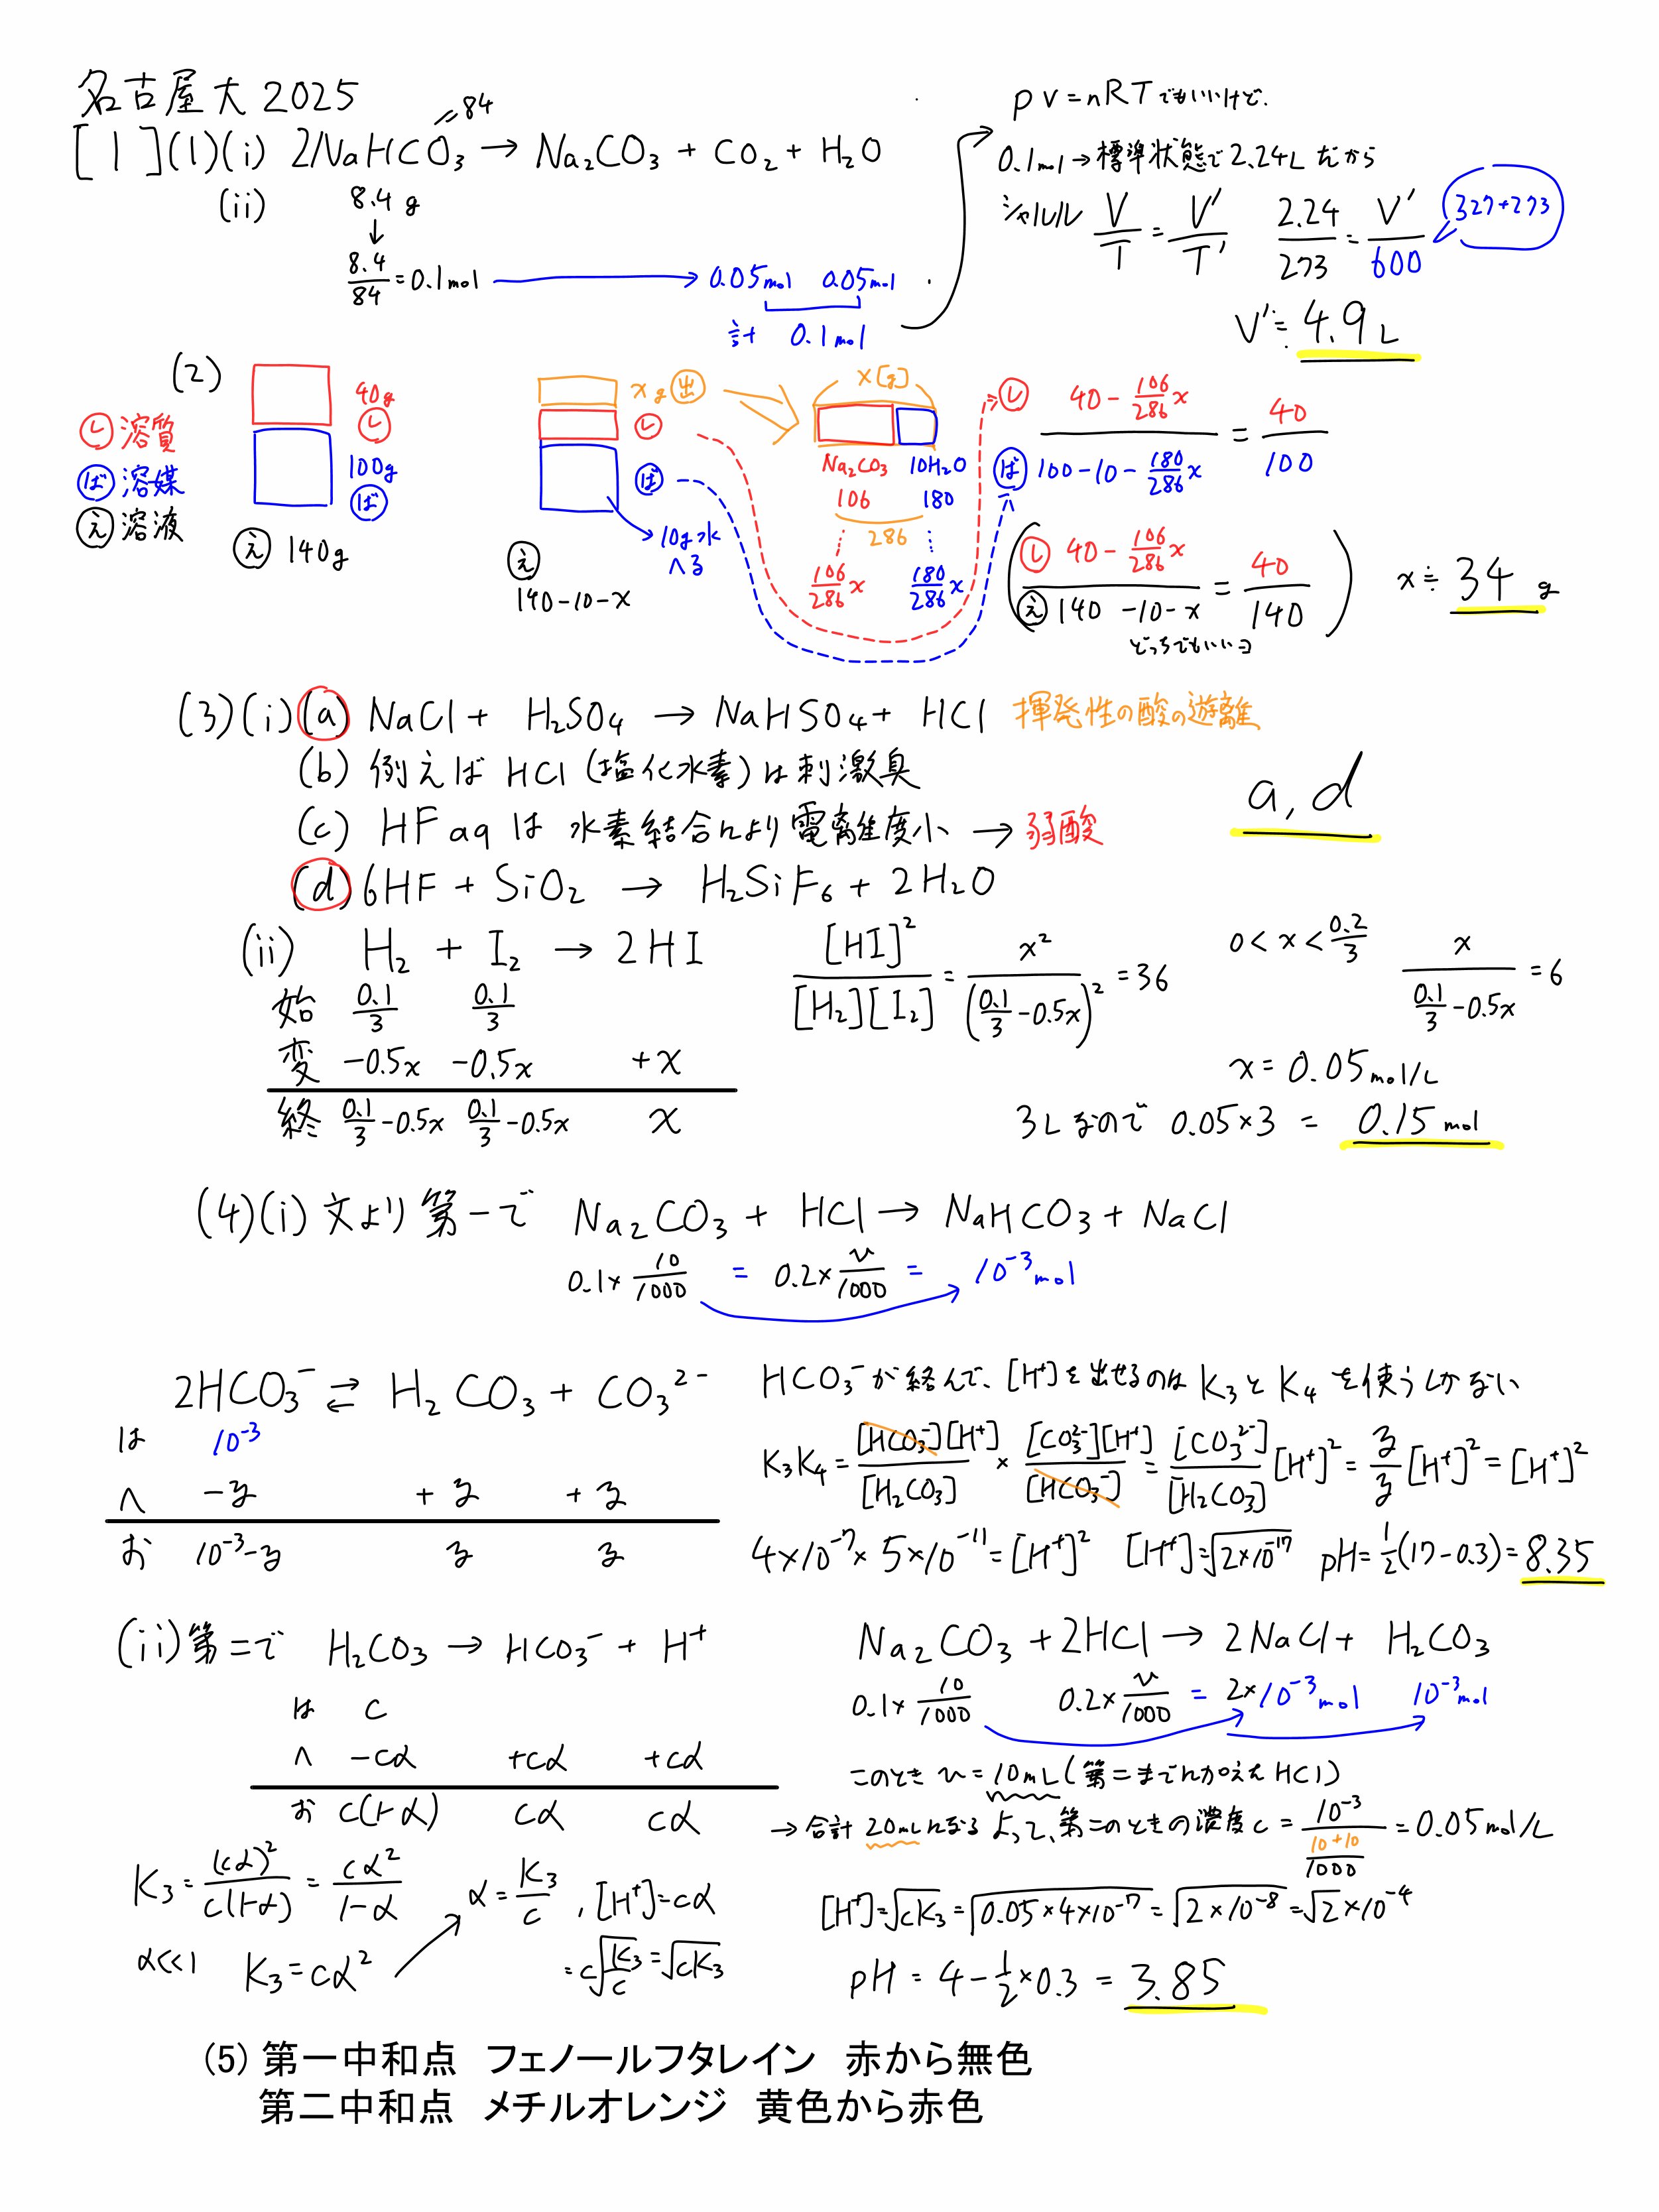 名古屋大 2025
[1](1)(i) 2NaHCO₃ → Na₂CO₃ + CO₂ + H₂O
=84
(ii) 8.4 g
↓
8.4/84 = 0.1mol → 0.05mol 0.05mol
計 0.1mol
pv=nRTでもいいけど.
0.1mol→標準状態で2.24Lだから
シャルル V/T = V'/T' 2.24/273 = V'/600 327+273
V'≒ 4.9L
(2)
し 溶質
ば 溶媒
え 溶液
40g
し
100g
ば
え 140g
xg 出
し
ば
→10g水
へる
え
140-10-x
x[g]
Na₂CO₃ 10H₂O
106 180
286
106/286 x 180/286 x
し 40 - 106/286 x
ば 100-10- 180/286 x
= 40/100
( し 40 - 106/286 x / え 140 -10-x = 40/140 )
どっちでもいいヨ
x≒ 34 g
(3)(i)(a) NaCl + H₂SO₄ → NaHSO₄ + HCl 揮発性の酸の遊離
(b) 例えば HCl (塩化水素)は刺激臭
(c) HFaqは 水素結合により電離度小 → 弱酸
(d) 6HF + SiO₂ → H₂SiF₆ + 2H₂O
a, d
(ii) H₂ + I₂ → 2HI
始 0.1/3 0.1/3
変 -0.5x -0.5x +x
終 0.1/3 -0.5x 0.1/3 -0.5x x
[HI]²/[H₂][I₂] = x²/(0.1/3 -0.5x)² = 36
0<x<0.2/3 x/(0.1/3 -0.5x) = 6
x = 0.05mol/L
3Lなので 0.05×3 = 0.15 mol
(4)(i) 文より 第一で Na₂CO₃ + HCl → NaHCO₃ + NaCl
0.1× 10/1000 = 0.2× v/1000 = 10⁻³mol
2HCO₃⁻ ⇄ H₂CO₃ + CO₃²⁻
は 10⁻³
へ -z +z +z
お 10⁻³-z z z
HCO₃⁻が絡んで、[H⁺]を出せるのは K₃とK₄を使うしかない
K₃K₄ = [HCO₃⁻][H⁺]/[H₂CO₃] × [CO₃²⁻][H⁺]/[HCO₃⁻] = [CO₃²⁻]/[H₂CO₃] [H⁺]² = z/z [H⁺]² = [H⁺]²
4×10⁻⁷×5×10⁻¹¹=[H⁺]² [H⁺]=√2×10⁻¹⁷ pH=1/2(17-0.3)=8.35
(ii)第二で H₂CO₃ → HCO₃⁻ + H⁺
は c
へ -cα +cα +cα
お c(1-α) cα cα
K₃ = (cα)²/c(1-α) = cα²/1-α
α≪1 K₃=cα²
α= K₃/c , [H⁺]=cα
=c√K₃/c = √cK₃
Na₂CO₃ + 2HCl → 2NaCl + H₂CO₃
0.1× 10/1000 0.2× v/1000 = 2×10⁻³mol 10⁻³mol
このとき v=10mL(第二までに加えたHCl)
→合計 20mLになる よって、第二のときの濃度c = 10⁻³/(10+10/1000) = 0.05mol/L
[H⁺]=√cK₃=√0.05×4×10⁻⁷=√2×10⁻⁸=√2×10⁻⁴
pH = 4 - 1/2×0.3 = 3.85
(5) 第一中和点 フェノールフタレイン 赤から無色
第二中和点 メチルオレンジ 黄色から赤色